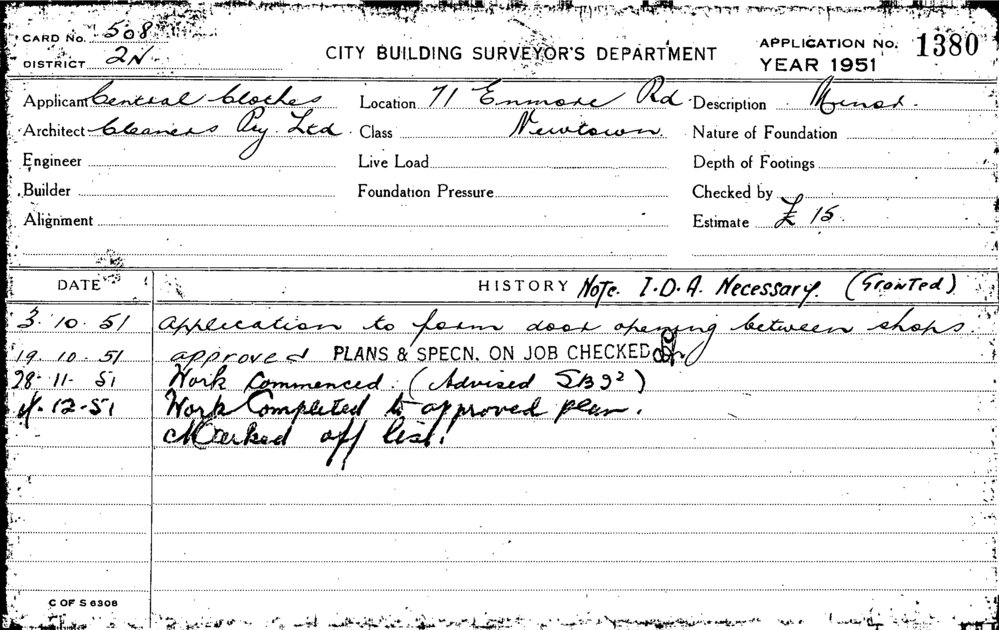 CARD No. 508
DISTRICT 2N.
CITY BUILDING SURVEYOR'S DEPARTMENT
APPLICATION No. 1380
YEAR 1951
Applicant Central Clothes Location 71 Enmore Rd. Description Minor.
Architect Cleaners Pty. Ltd. Class Newtown. Nature of Foundation
Engineer Live Load Depth of Footings
Builder Foundation Pressure Checked by
Alignment Estimate £ 15.
DATE HISTORY Note. I.D.A. Necessary. (Granted)
3. 10. 51 Application to form door opening between shops.
19. 10. 51 approved PLANS & SPECN. ON JOB CHECKED
28. 11. 51 Work Commenced. (Advised
12-51 Work Completed to approved plan.
Marked off list.
C OF S 6308